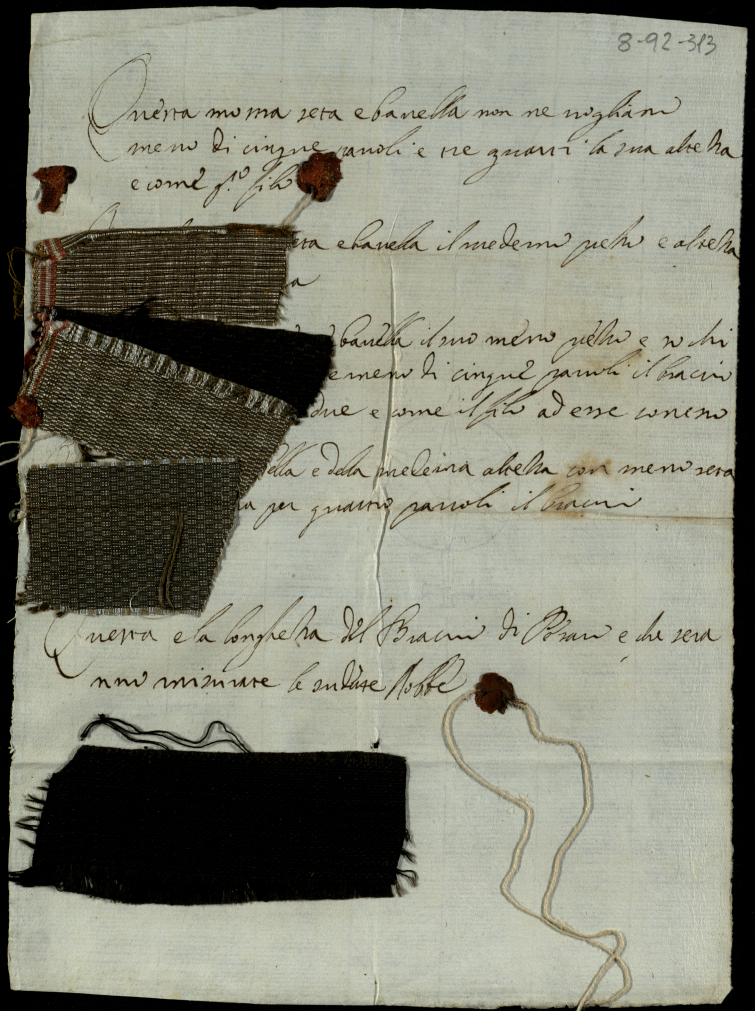 8-92-313
Questa mostra seta e bavella non ne vogliano
meno di cinque pavoli e tre quarti la sua altezza
e come q.to filo
seta e bavella il medemo pretio e altezza
bavella il suo meno pretio e
e meno di cinque pavoli il bracio
due e come il filo ad esse conesso
e dela medeima altezza con meno seta
per quatro pavoli il bracio
Questa e la longhezza del Bracio di Pesaro e che sera
nno misurate le sudete Robbe